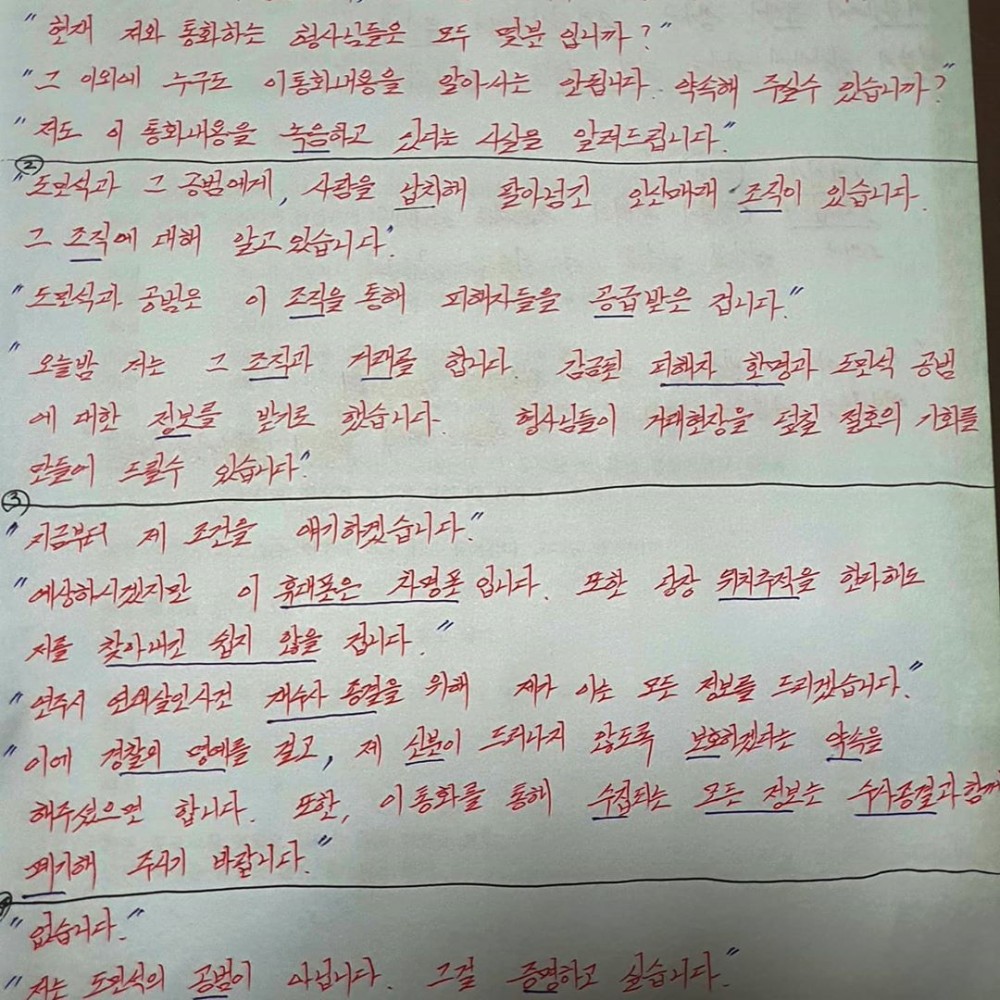 "현재 저와 통화하는 형사님들은 모두 몇분 입니까?"
"그 이외에 누구도 이통화내용을 알아서는 안됩니다. 약속해 주실수 있습니까?"
"저도 이 통화내용을 녹음하고 있다는 사실을 알려드립니다."
②
"도민석과 그 공범에게, 사람을 납치해 팔아넘긴 인신매매 조직이 있습니다.
그 조직에 대해 알고있습니다."
"도민석과 공범은 이 조직을 통해 피해자들을 공급받은 겁니다."
"오늘밤 저는 그 조직과 거래를 합니다. 감금된 피해자 한명과 도민석 공범
에 대한 정보를 받기로 했습니다. 형사님들이 거래현장을 덮칠 절호의 기회를
만들어 드릴수 있습니다"
③
"지금부터 제 조건을 얘기하겠습니다."
"예상하시겠지만 이 휴대폰은 차명폰 입니다. 또한 당장 위치추적을 한다해도
저를 찾아내긴 쉽지 않을 겁니다."
"연주시 연쇄살인사건 재수사 종결을 위해 제가 아는 모든 정보를 드리겠습니다."
"이에 경찰의 명예를 걸고, 제 신분이 드러나지 않도록 보호하겠다는 약속을
해주셨으면 합니다. 또한, 이 통화를 통해 수집되는 모든 정보는 수사종결과 함께
폐기해 주시기 바랍니다."
"없습니다."
"저는 도민석의 공범이 아닙니다. 그걸 증명하고 싶습니다."